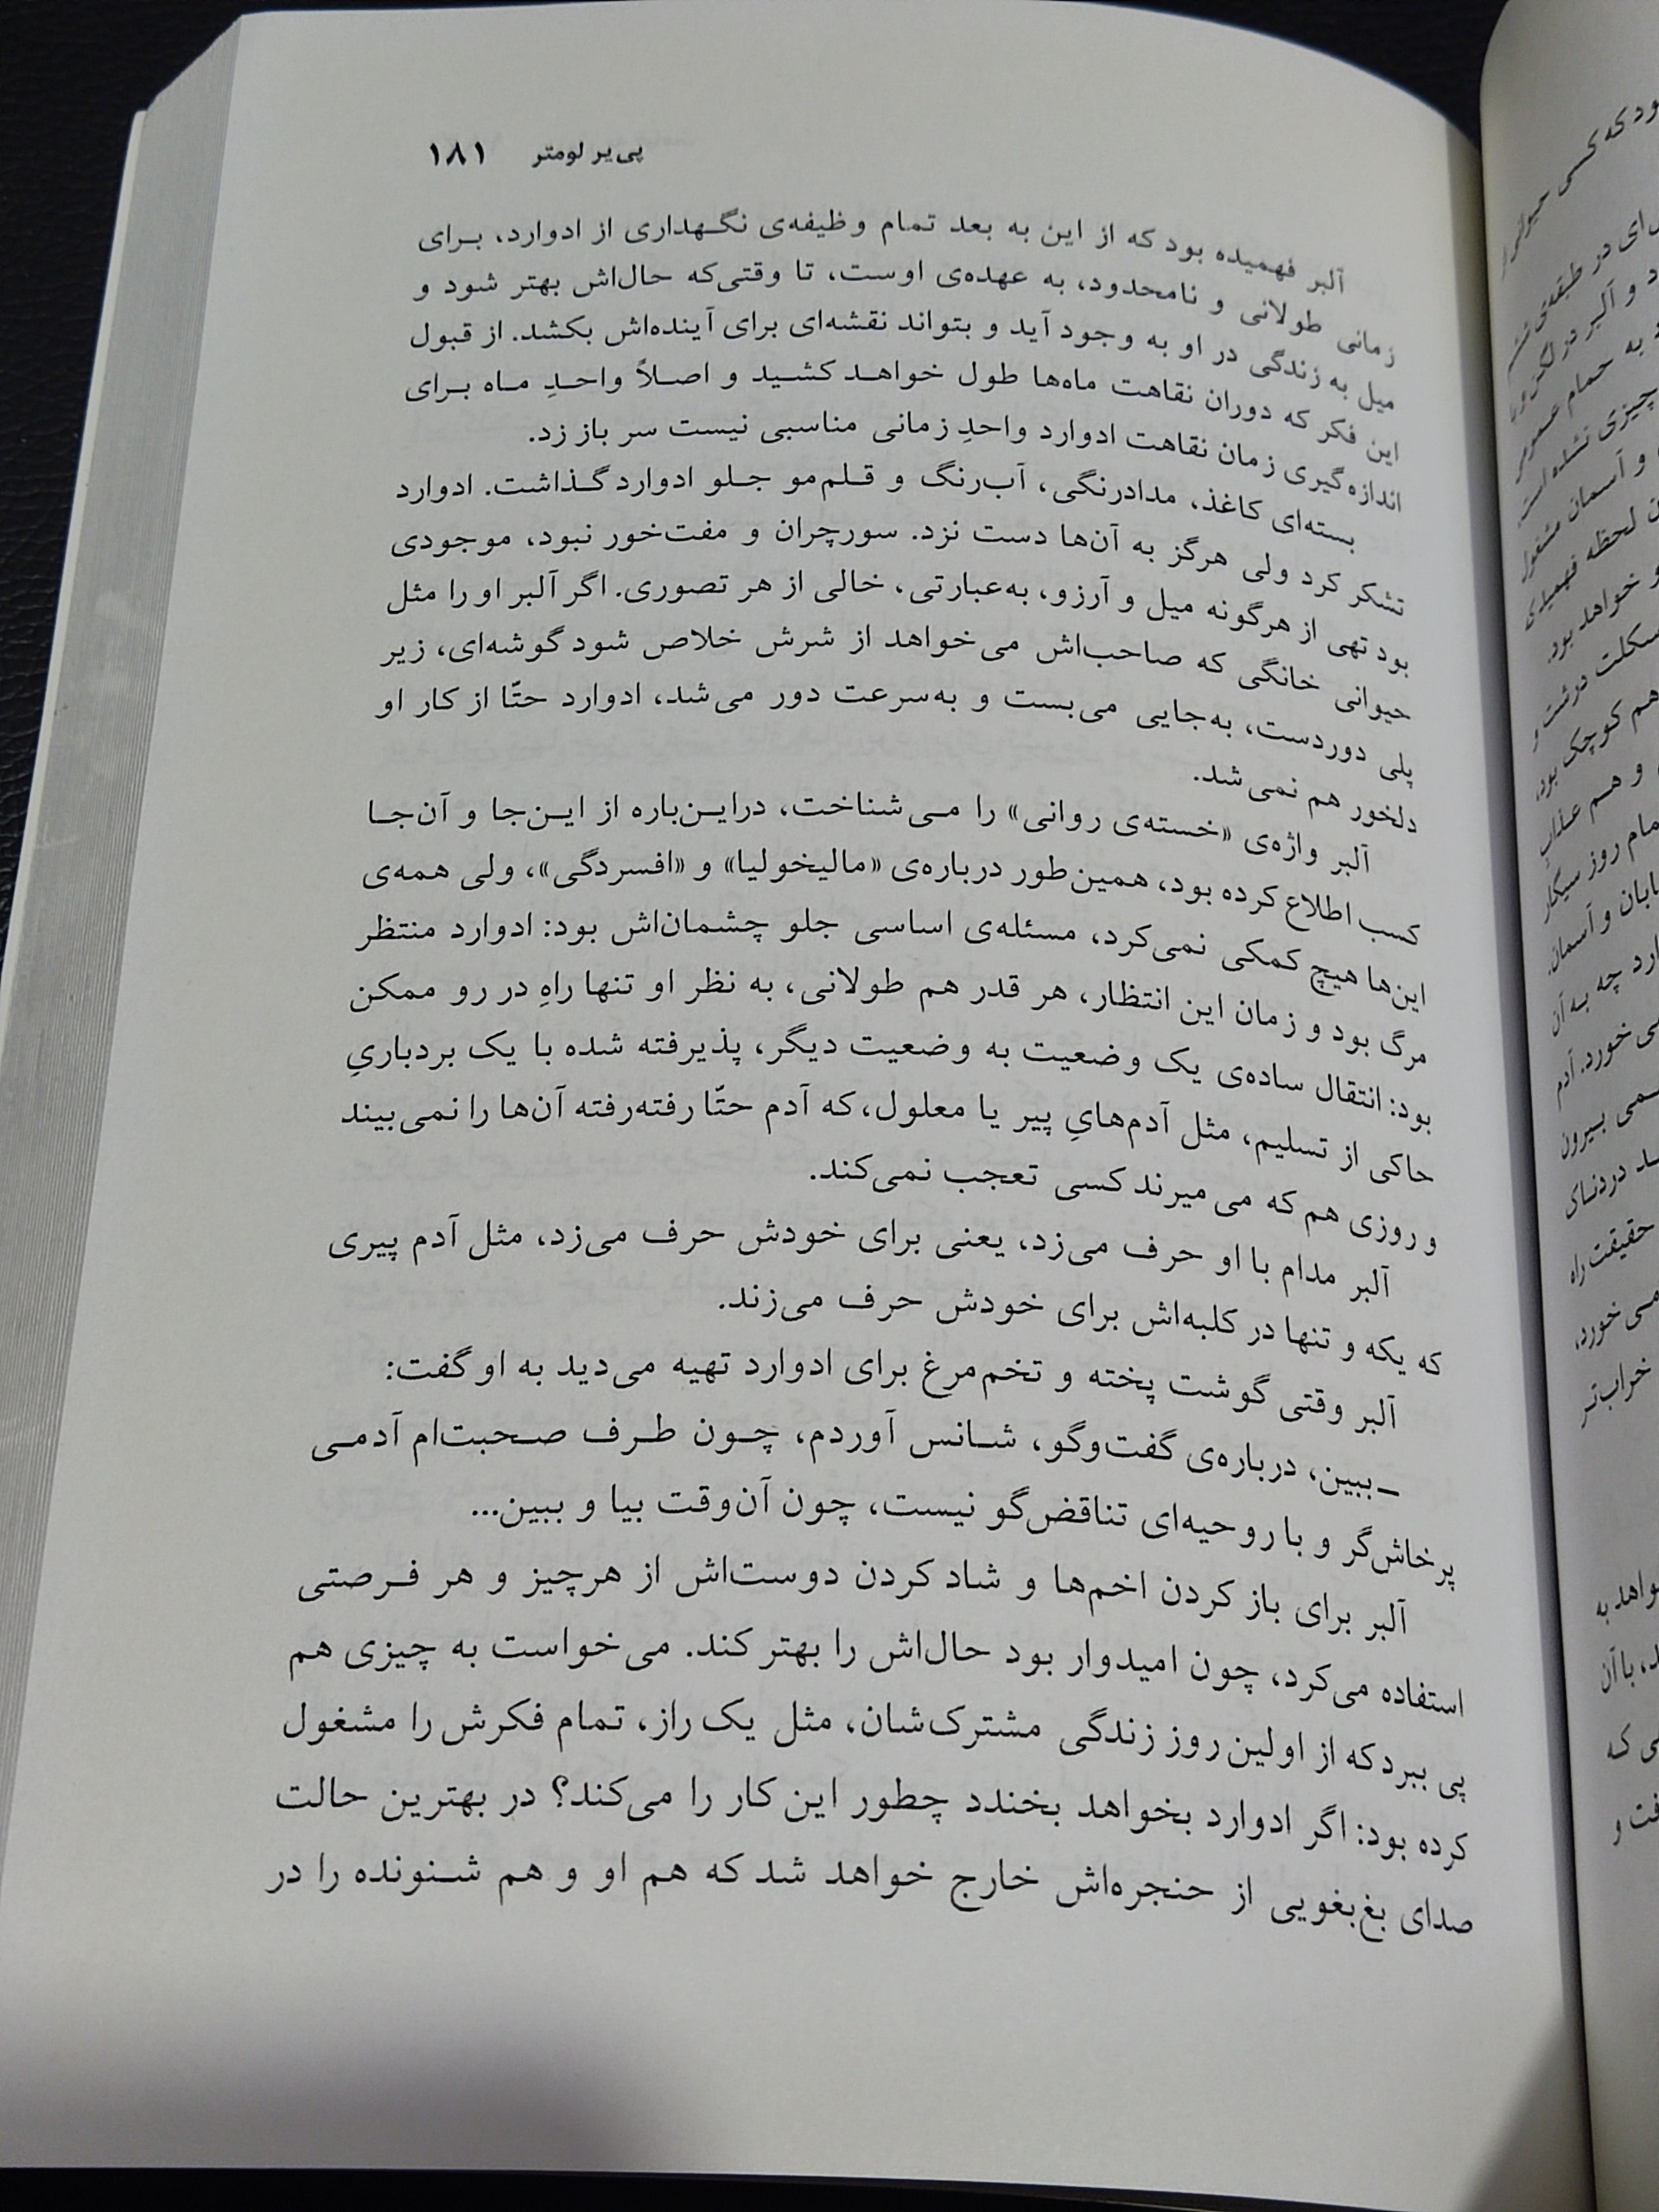 پی‌یر لومتر ۱۸۱
آلبر فهمیده بود که از این به بعد تمام وظیفه‌ی نگهداری از ادوارد، برای
زمانی طولانی و نامحدود، به عهده‌ی اوست، تا وقتی‌که حال‌اش بهتر شود و
میل به زندگی در او به وجود آید و بتواند نقشه‌ای برای آینده‌اش بکشد. از قبول
این فکر که دوران نقاهت ماه‌ها طول خواهد کشید و اصلاً واحدِ ماه برای
اندازه‌گیری زمان نقاهت ادوارد واحدِ زمانی مناسبی نیست سر باز زد.
بسته‌ای کاغذ، مدادرنگی، آب‌رنگ و قلم‌مو جلو ادوارد گذاشت. ادوارد
تشکر کرد ولی هرگز به آن‌ها دست نزد. سورچران و مفت‌خور نبود، موجودی
بود تهی از هرگونه میل و آرزو، به‌عبارتی، خالی از هر تصوری. اگر آلبر او را مثل
حیوانی خانگی که صاحب‌اش می‌خواهد از شرش خلاص شود گوشه‌ای، زیر
پلی دوردست، به‌جایی می‌بست و به‌سرعت دور می‌شد، ادوارد حتّا از کار او
دلخور هم نمی‌شد.
آلبر واژه‌ی «خسته‌ی روانی» را می‌شناخت، دراین‌باره از این‌جا و آن‌جا
کسب اطلاع کرده بود، همین‌طور درباره‌ی «مالیخولیا» و «افسردگی»، ولی همه‌ی
این‌ها هیچ کمکی نمی‌کرد، مسئله‌ی اساسی جلو چشمان‌اش بود: ادوارد منتظر
مرگ بود و زمان این انتظار، هر قدر هم طولانی، به نظر او تنها راهِ در رو ممکن
بود: انتقال ساده‌ی یک وضعیت به وضعیت دیگر، پذیرفته شده با یک بردباریِ
حاکی از تسلیم، مثل آدم‌هایِ پیر یا معلول، که آدم حتّا رفته‌رفته آن‌ها را نمی‌بیند
و روزی هم که می‌میرند کسی تعجب نمی‌کند.
آلبر مدام با او حرف می‌زد، یعنی برای خودش حرف می‌زد، مثل آدم پیری
که یکه و تنها در کلبه‌اش برای خودش حرف می‌زند.
آلبر وقتی گوشت پخته و تخم‌مرغ برای ادوارد تهیه می‌دید به او گفت:
ـ ببین، درباره‌ی گفت‌وگو، شانس آوردم، چون طرف صحبت‌ام آدمی
پرخاش‌گر و با روحیه‌ای تناقض‌گو نیست، چون آن‌وقت بیا و ببین...
آلبر برای باز کردن اخم‌ها و شاد کردن دوست‌اش از هرچیز و هر فرصتی
استفاده می‌کرد، چون امیدوار بود حال‌اش را بهتر کند. می‌خواست به چیزی هم
پی ببرد که از اولین روز زندگی مشترک‌شان، مثل یک راز، تمام فکرش را مشغول
کرده بود: اگر ادوارد بخواهد بخندد چطور این کار را می‌کند؟ در بهترین حالت
صدای بغ‌بغویی از حنجره‌اش خارج خواهد شد که هم او و هم شنونده را در